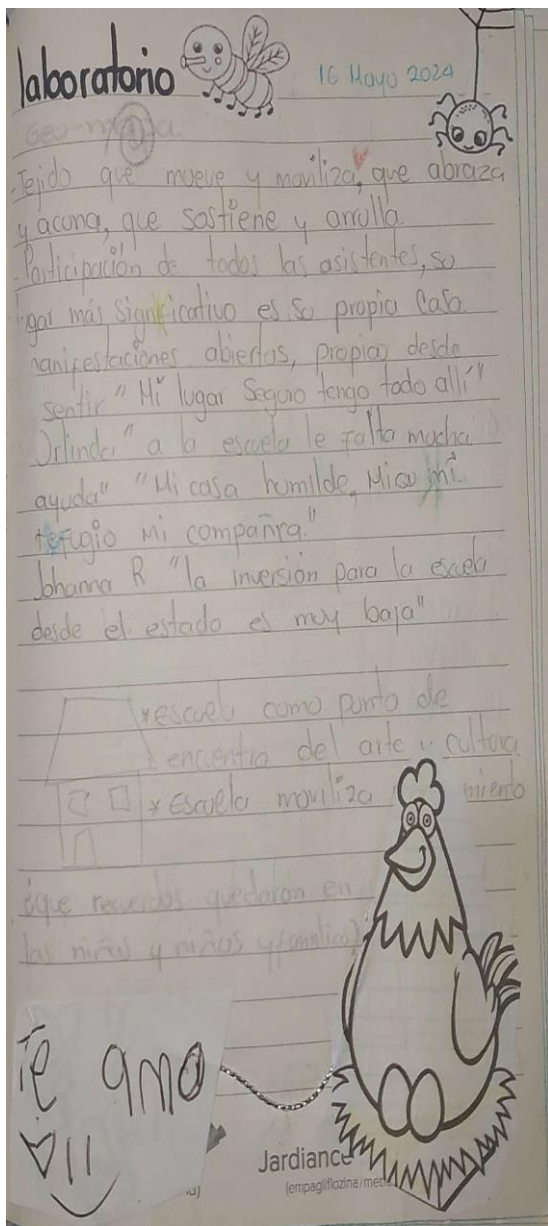 laboratorio
16 Mayo 2024
Geo-
-Tejido que mueve y moviliza, que abraza
y acuna, que sostiene y arrulla
-Participación de todos las asistentes, so
gar más significativo es so propia Casa
manifestaciones abiertas, propias desde
sentir "Mi lugar Seguro tengo todo allí"
Orlinda "a la escuela le falta mucha
ayuda" "Mi casa humilde, mi
refugio mi compañra."
Johanna R "la inversión para la escuela
desde el estado es muy baja"
*escuela como punto de
encuentro del arte y cultura
*Escuela moviliza miento
¿que recuerdos quedaron en
las niñas y niños y familias?
Te amo
Jardiance
(empagliflozina/met